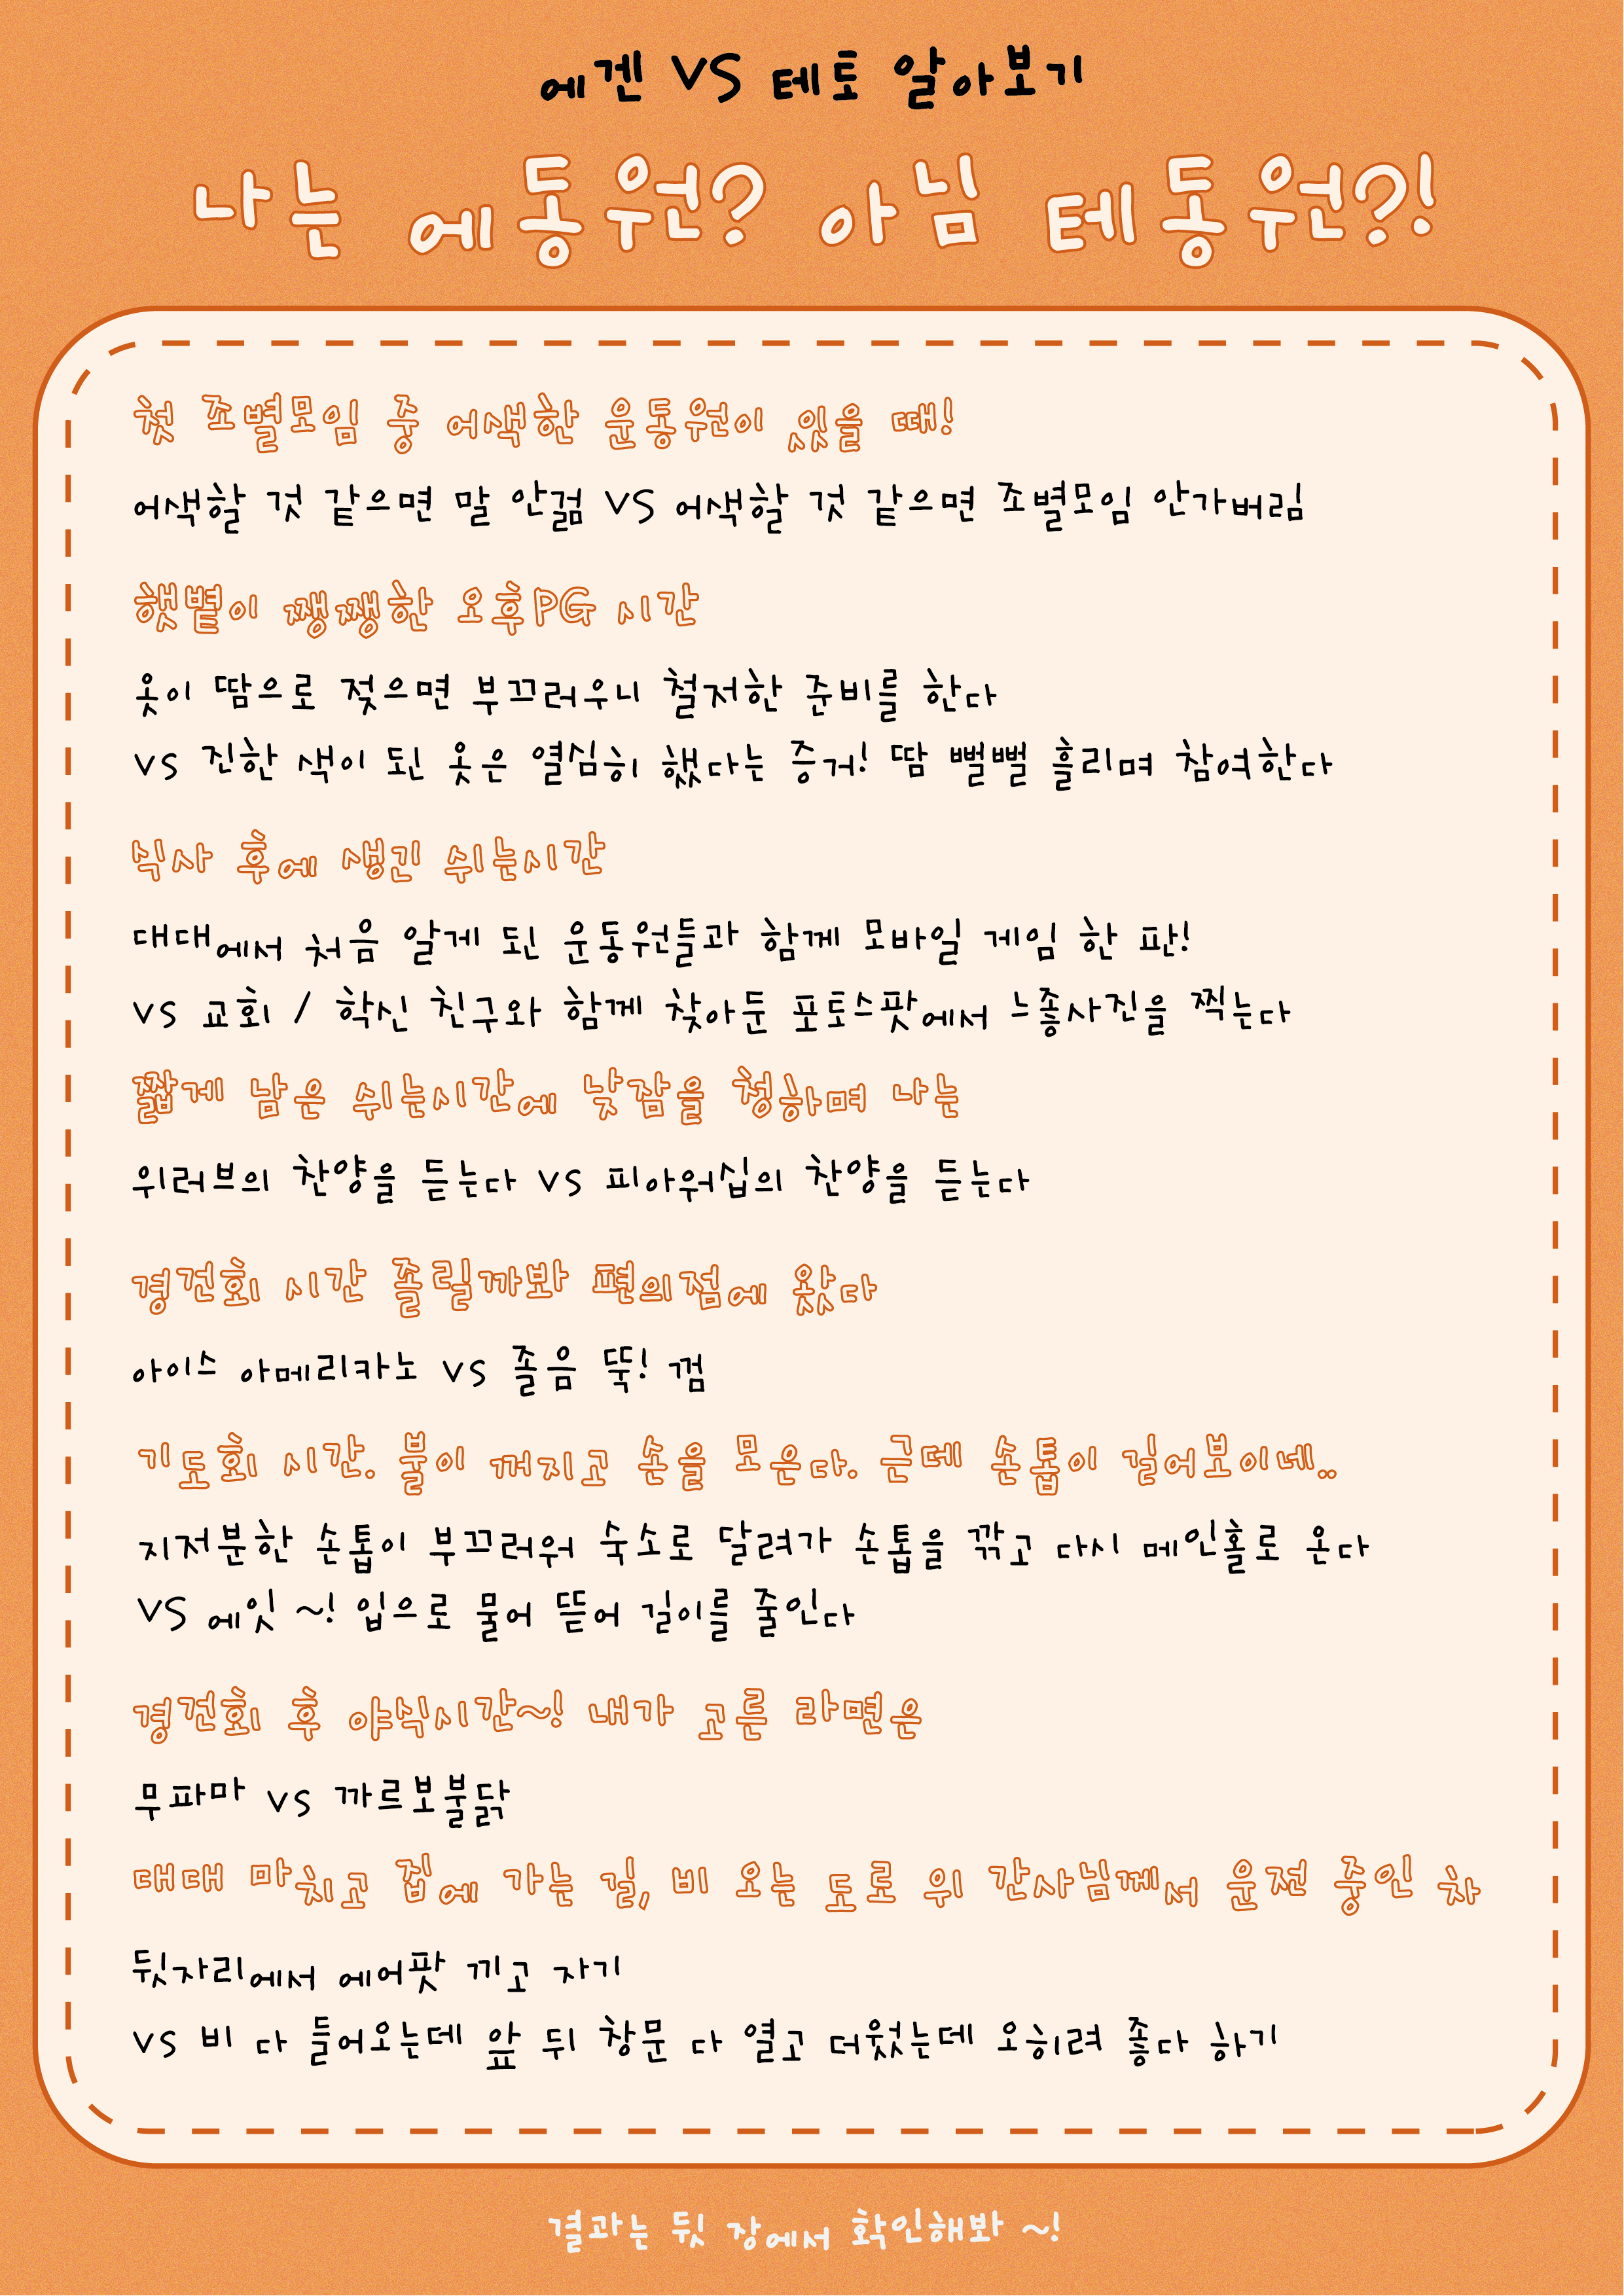 에겐 VS 테토 알아보기
나는 에동원? 아님 테동원?!
첫 조별모임 중 어색한 운동원이 있을 때!
어색할 것 같으면 말 안걺 VS 어색할 것 같으면 조별모임 안가버림
햇볕이 쨍쨍한 오후PG 시간
옷이 땀으로 젖으면 부끄러우니 철저한 준비를 한다
vs 진한 색이 된 옷은 열심히 했다는 증거! 땀 뻘뻘 흘리며 참여한다
식사 후에 생긴 쉬는시간
대대에서 처음 알게 된 운동원들과 함께 모바일 게임 한 판!
vs 교회 / 학신 친구와 함께 찾아둔 포토스팟에서 느좋사진을 찍는다
짧게 남은 쉬는시간에 낮잠을 청하며 나는
위러브의 찬양을 듣는다 vs 피아워십의 찬양을 듣는다
경건회 시간 졸릴까봐 편의점에 왔다
아이스 아메리카노 vs 졸음 뚝! 껌
기도회 시간. 불이 꺼지고 손을 모은다. 근데 손톱이 길어보이네..
지저분한 손톱이 부끄러워 숙소로 달려가 손톱을 깎고 다시 메인홀로 온다
VS 에잇 ~! 입으로 물어 뜯어 길이를 줄인다
경건회 후 야식시간~! 내가 고른 라면은
무파마 vs 까르보불닭
대대 마치고 집에 가는 길, 비 오는 도로 위 간사님께서 운전 중인 차
뒷자리에서 에어팟 끼고 자기
vs 비 다 들어오는데 앞 뒤 창문 다 열고 더웠는데 오히려 좋다 하기
결과는 뒷 장에서 확인해봐 ~!